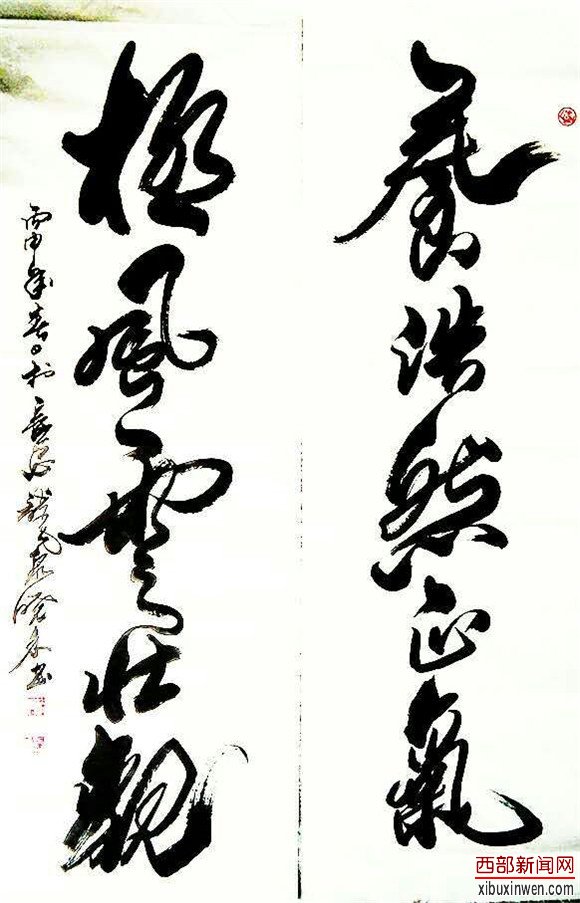 養浩然正氣
極風雲壯觀
丙申年春日於
書
西部新闻网
xibuxinwen.com